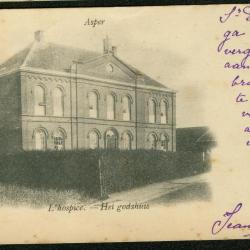 Asper
L'hospice. — Het godshuis
ga
verg
aan
bra
te
v
a
Jean